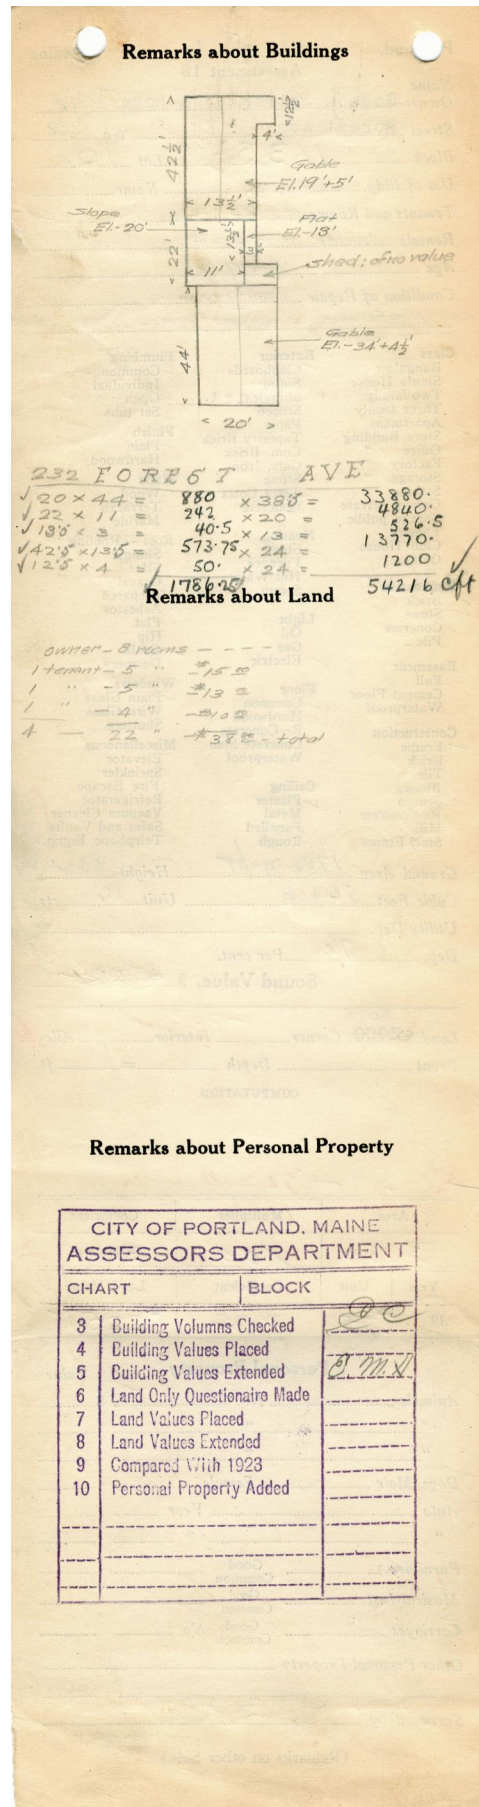 Remarks about Buildings
12½
4'
42½'
Gable
El. 19'+5'
13½'
Slope
El.-20'
Flat
El.-13'
13½
3
22'
11'
shed: of no value
Gable
El.-34'+4½
44'
20'
232 FOREST AVE
√20 × 44 = 880 × 38.5 = 33880.
√22 × 11 = 242 × 20 = 4840.
√13.5 × 3 = 40.5 × 13 = 526.5
√42.5 × 13.5 = 573.75 × 24 = 13770.
√12.5 × 4 = 50. × 24 = 1200
√1786.25 54216 cft √
Remarks about Land
owner - 8 rooms - - - -
1 tenant - 5 " - $15 00
1 " - 5 " - $13 00
1 " - 4 " - $10 00
4 — 22 " - $38 00 - total
Remarks about Personal Property
CITY OF PORTLAND, MAINE
ASSESSORS DEPARTMENT
CHART BLOCK
3 Building Volumns Checked
4 Building Values Placed
5 Building Values Extended E.M.H.
6 Land Only Questionaire Made
7 Land Values Placed
8 Land Values Extended
9 Compared With 1923
10 Personal Property Added